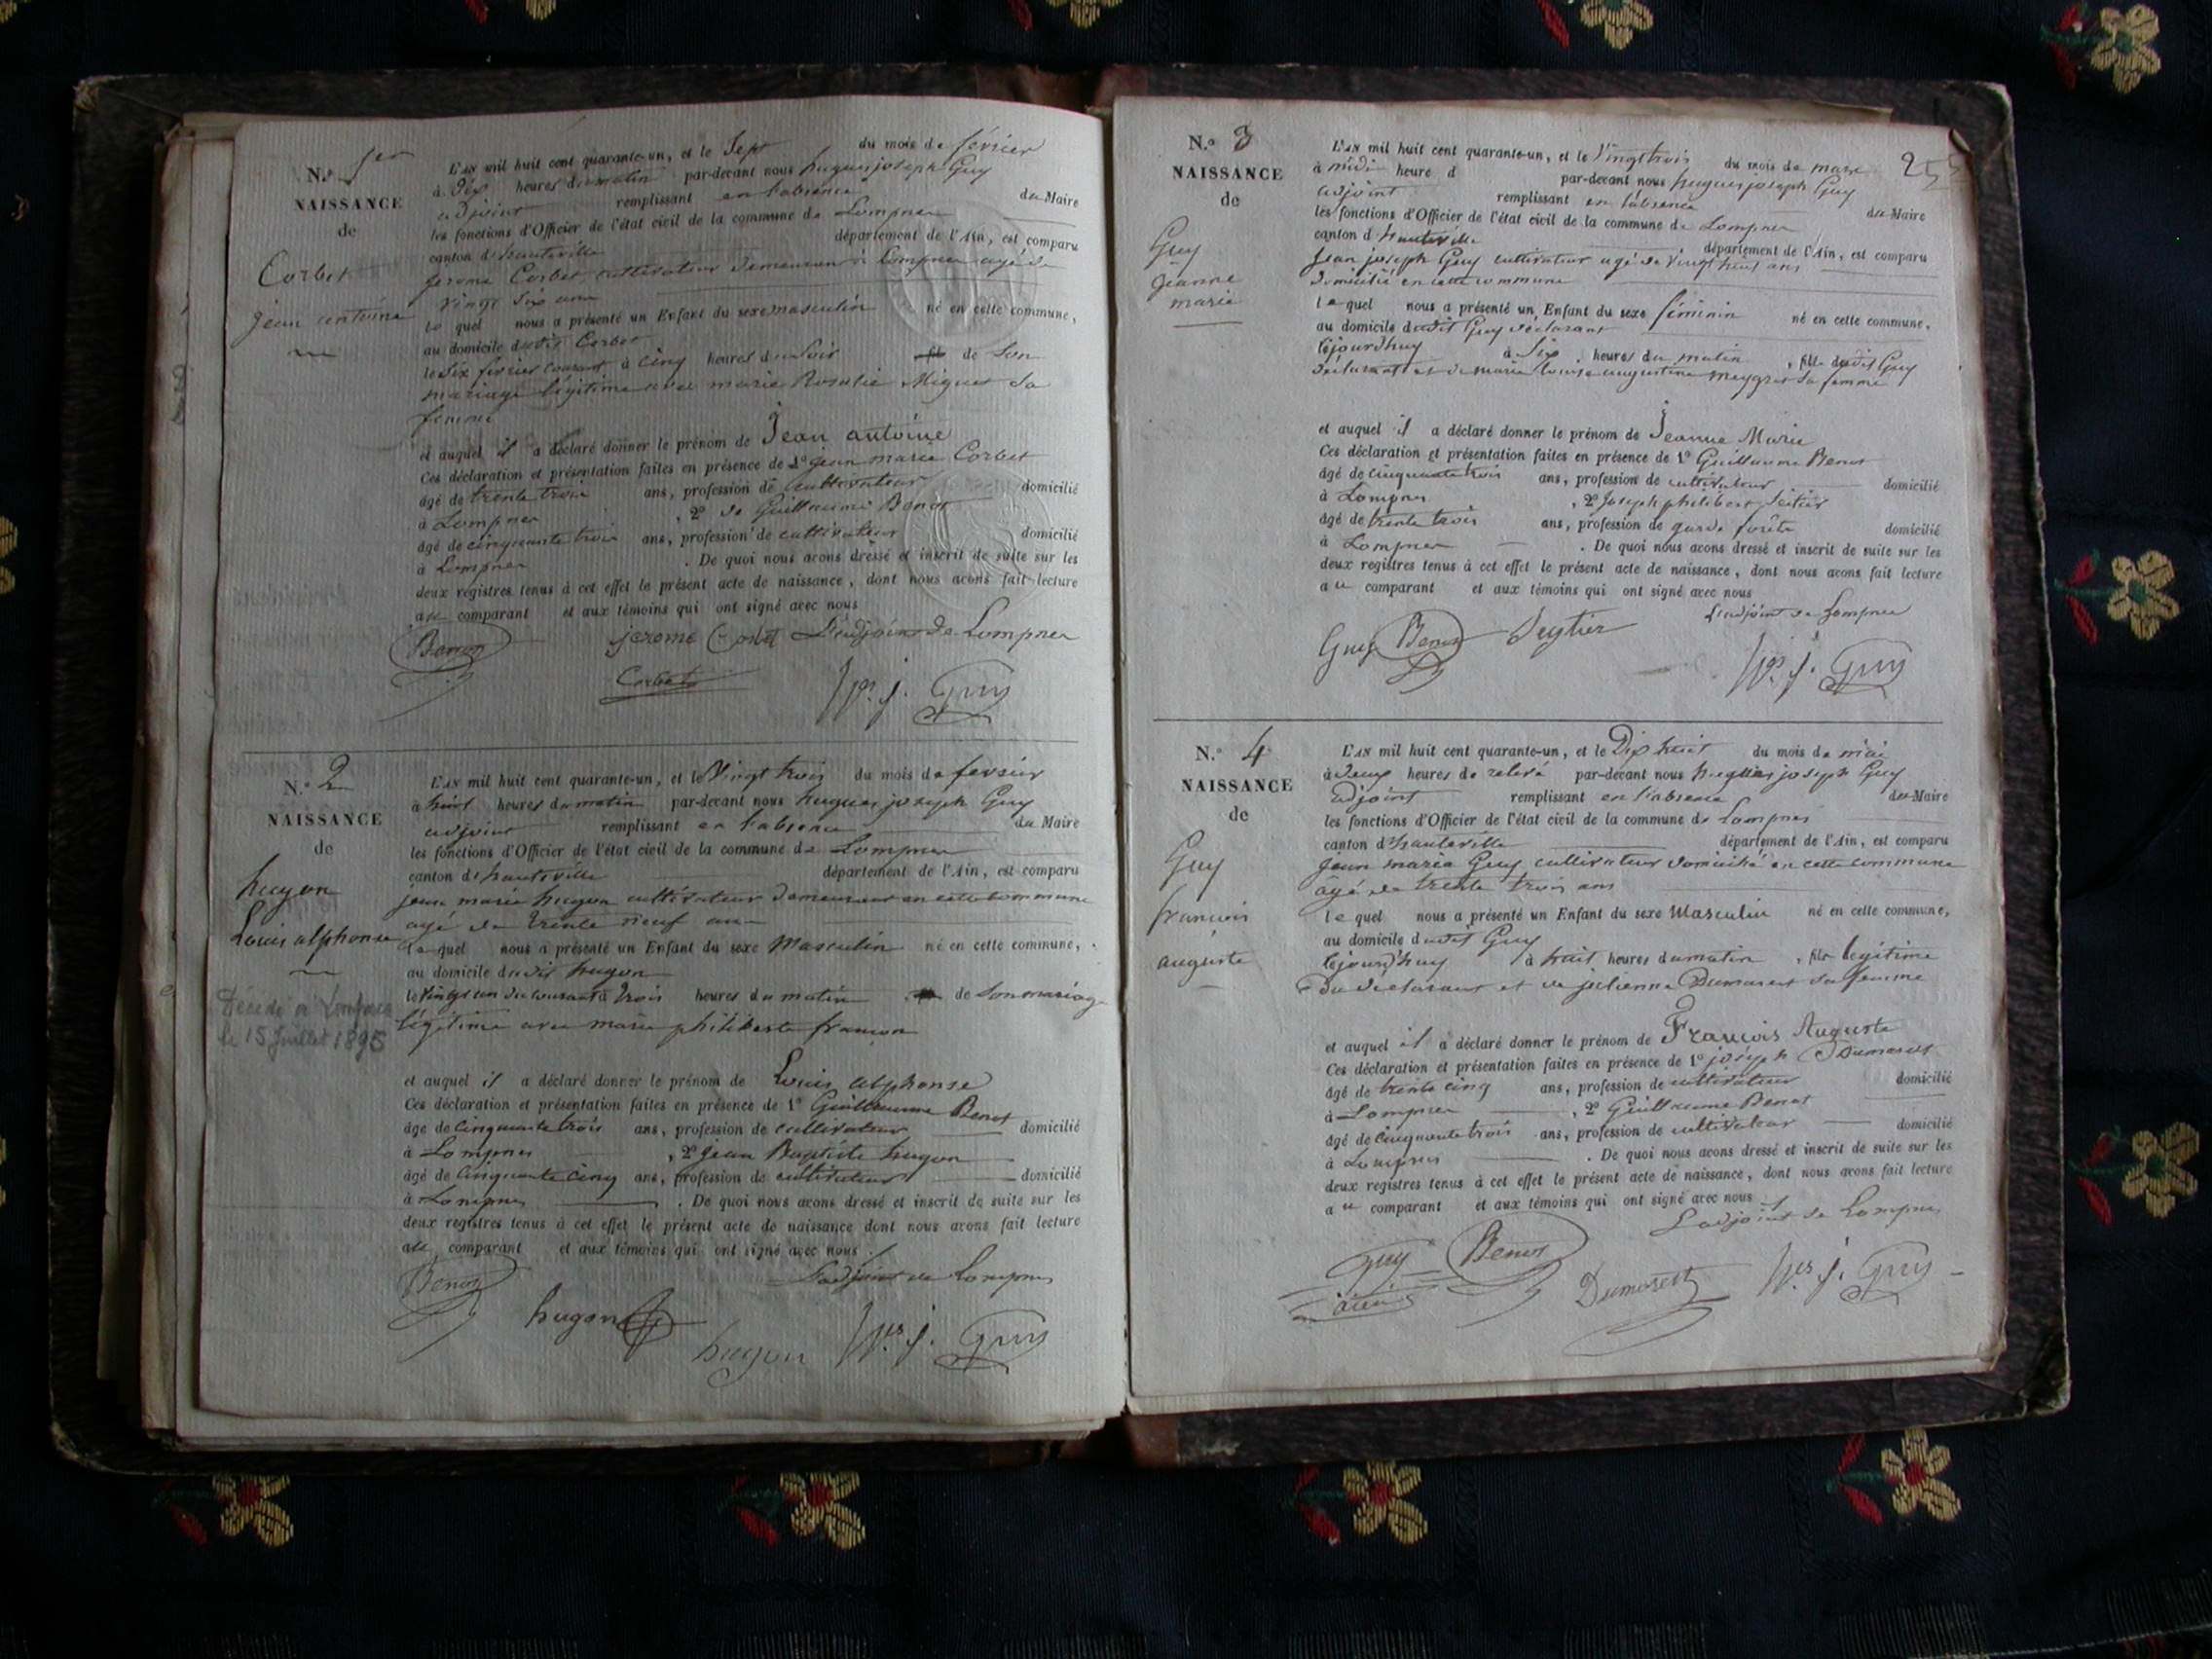 N.o 1er
NAISSANCE
de
Corbet
jean antoine
L'AN mil huit cent quarante-un, et le Sept du mois de février
à dix heures du matin par-devant nous hugues joseph Guy
adjoint remplissant en l'absence du Maire
les fonctions d'Officier de l'état civil de la commune de Lompnes
canton d'hauteville département de l'Ain, est comparu
jerome Corbet cultivateur demeurant à Lompnes agé de
vingt six ans
le quel nous a présenté un Enfant du sexe masculin né en cette commune,
au domicile dudit Corbet
le six fevrier courant à cinq heures du soir de son
mariage légitime avec marie Rosalie Miguet sa
femme
et auquel il a déclaré donner le prénom de Jean antoine
Ces déclaration et présentation faites en présence de 1o jean marie Corbet
âgé de trente trois ans, profession de cultivateur domicilié
à Lompnes , 2o de Guillaume Benot
âgé de cinquante trois ans, profession de cultivateur domicilié
à Lompnes . De quoi nous avons dressé et inscrit de suite sur les
deux registres tenus à cet effet le présent acte de naissance, dont nous avons fait lecture
au comparant et aux témoins qui ont signé avec nous
Benot jerome Corbet L'adjoint de Lompnes
Corbet hgs. j. Guy
N.o 2
NAISSANCE
de
hugon
Louis alphonse
Décédé à Lompnes
le 15 Juillet 1895
L'AN mil huit cent quarante-un, et le Vingt trois du mois de fevrier
à huit heures du matin par-devant nous hugues joseph Guy
adjoint remplissant en l'absence du Maire
les fonctions d'Officier de l'état civil de la commune de Lompnes
canton d'hauteville département de l'Ain, est comparu
jean marie hugon cultivateur demeurant en cette commune
agé de trente neuf ans
le quel nous a présenté un Enfant du sexe Masculin né en cette commune,
au domicile dudit hugon
le vingt un du courant à trois heures du matin de son mariage
légitime avec marie philiberte françon
et auquel il a déclaré donner le prénom de Louis alphonse
Ces déclaration et présentation faites en présence de 1o Guillaume Benot
âgé de cinquante trois ans, profession de cultivateur domicilié
à Lompnes , 2o jean Baptiste hugon
âgé de cinquante cinq ans, profession de cultivateur domicilié
à Lompnes . De quoi nous avons dressé et inscrit de suite sur les
deux registres tenus à cet effet le présent acte de naissance dont nous avons fait lecture
au comparant et aux témoins qui ont signé avec nous.
Benot L'adjoint de Lompnes
hugon hugon hgs. j. Guy
255
N.o 3
NAISSANCE
de
Guy
jeanne
marie
L'AN mil huit cent quarante-un, et le Vingt trois du mois de mars
à midi heure d par-devant nous hugues joseph Guy
adjoint remplissant en l'absence du Maire
les fonctions d'Officier de l'état civil de la commune de Lompnes
canton d'hauteville département de l'Ain, est comparu
jean joseph Guy cultivateur agé de vingt huit ans
domicilié en cette commune
le quel nous a présenté un Enfant du sexe féminin né en cette commune,
au domicile dudit Guy déclarant
cejourd'huy à six heures du matin , fille dudit Guy
déclarant et de marie louise augustine meygret sa femme
et auquel il a déclaré donner le prénom de Jeanne Marie
Ces déclaration et présentation faites en présence de 1o Guillaume Benot
âgé de cinquante trois ans, profession de cultivateur domicilié
à Lompnes , 2o Joseph philibert Seitier
âgé de trente trois ans, profession de garde forêts domicilié
à Lompnes . De quoi nous avons dressé et inscrit de suite sur les
deux registres tenus à cet effet le présent acte de naissance, dont nous avons fait lecture
au comparant et aux témoins qui ont signé avec nous
L'adjoint de Lompnes
Guy Benot Seytier
hgs. j. Guy
N.o 4
NAISSANCE
de
Guy
francois
auguste
L'AN mil huit cent quarante-un, et le Dix huit du mois de mai
à deux heures de relevé par-devant nous hugues joseph Guy
adjoint remplissant en l'absence du Maire
les fonctions d'Officier de l'état civil de la commune de Lompnes
canton d'hauteville département de l'Ain, est comparu
jean marie Guy cultivateur domicilié en cette commune
âgé de trente trois ans
le quel nous a présenté un Enfant du sexe Masculin né en cette commune,
au domicile dudit Guy
cejourd'huy à huit heures du matin , fils légitime
du déclarant et de julienne Dumarest sa femme
et auquel il a déclaré donner le prénom de François Auguste
Ces déclaration et présentation faites en présence de 1o joseph Dumarest
âgé de trente cinq ans, profession de cultivateur domicilié
à Lompnes , 2o Guillaume Benot
âgé de cinquante trois ans, profession de cultivateur domicilié
à Lompnes . De quoi nous avons dressé et inscrit de suite sur les
deux registres tenus à cet effet le présent acte de naissance, dont nous avons fait lecture
au comparant et aux témoins qui ont signé avec nous
L'adjoint de Lompnes
Guy Benot Dumarest hgs. j. Guy